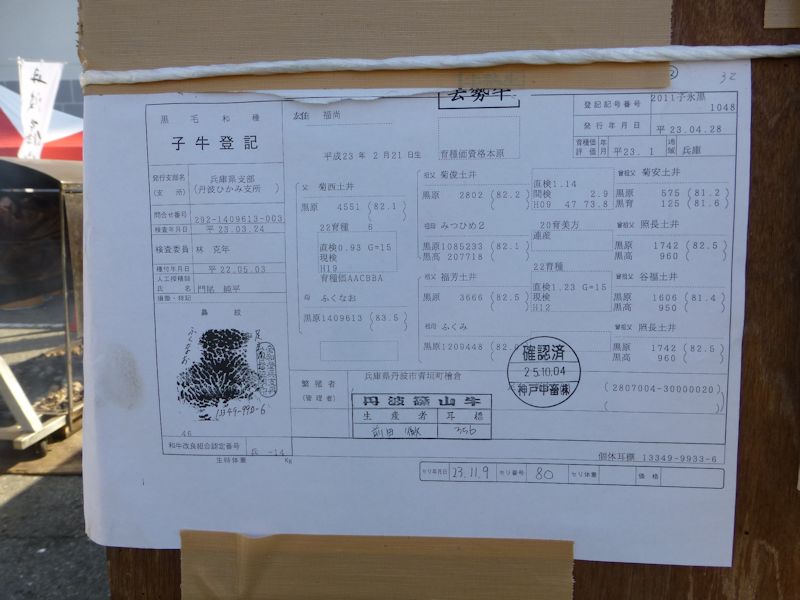 32
黒毛和種
子牛登記
雄 福尚
登記記号番号 2011子氷黒 1048
発行年月日 平 23.04.28
平成23年 2月21日生
育種価資格本原
育種価評価 年月 平23. 1 地域 兵庫
発行支部名(支所) 兵庫県支部 (丹波ひかみ支所)
問合せ番号 292-1409613-003
検査年月日 平 23.03.24
検査委員 林 克年
種付年月日 平 22.05.03
人工授精師氏名 門尾 純平
損徴・特記
鼻紋
ふくなお
13349-990-6
46
和牛改良組合認定番号 兵 -14
生時体重 Kg
父 菊西土井
黒原 4551 (82.1)
22育種 6
直検0.93 G=15
現検
H19
育種価AACBBA
母 ふくなお
黒原1409613 (83.5)
祖父 菊俊土井
黒原 2802 (82.2)
直検1.14
間検 2.9
H09 47 73.8
祖母 みつひめ2
黒原1085233 (82.1)
黒高 207718
20育美方
連産
祖父 福芳土井
黒原 3666 (82.5)
22育種
直検1.23 G=15
現検
H12
祖母 ふくみ
黒原1209448
曾祖父 菊安土井
黒原 575 (81.2)
黒育 125 (81.6)
曾祖父 照長土井
黒原 1742 (82.5)
黒高 960
曾祖父 谷福土井
黒原 1606 (81.4)
黒高 950
曾祖父 照長土井
黒原 1742 (82.5)
黒高 960
確認済
25.10.04
神戸中畜㈱
繁殖者(管理者) 兵庫県丹波市青垣町檜倉
(2807004-30000020)
丹波篠山牛
生産者 耳標
前田 徹 356
個体耳標 13349-9933-6
セリ年月日 23.11.9 セリ番号 80 セリ体重 価格